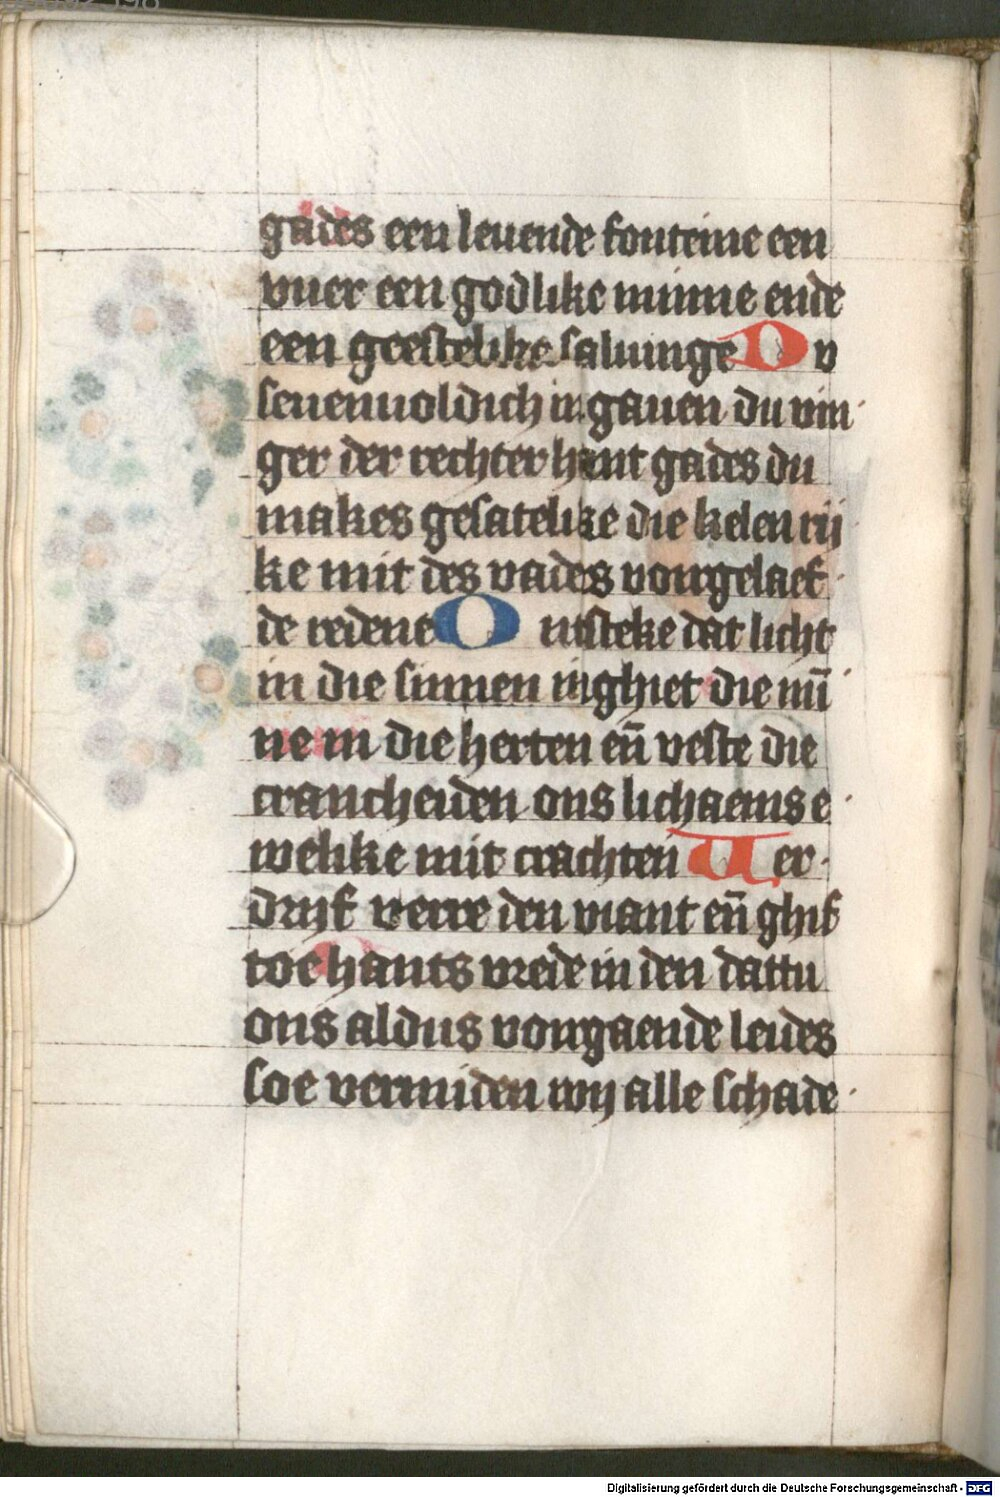 gades een leuende fonteine een
vuer een godlike minne ende
een geestelike saluinge Du
seuenuoldich in gauen du vin
ger der rechter hant gades du
makes gesatelike die kelen rij
ke mit des vades vorgelaef
de redene Ontsteke dat licht
in die sinnen inghiet die mī
ne in die herten eñ veste die
crancheiden ons lichaems e
welike mit crachten Ver
drijf verre den viant eñ ghif
toehants vrede in den dattu
ons aldus vorgaende leides
soe vermiden wij alle schade
Digitalisierung gefördert durch die Deutsche Forschungsgemeinschaft - DFG